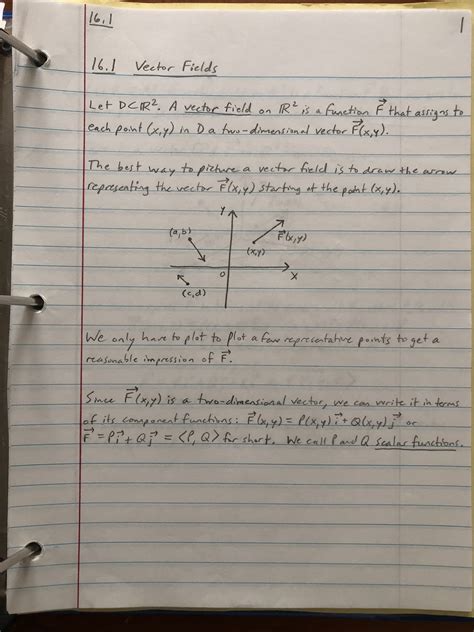 16.1
1
16.1 Vector Fields
Let D⊂ℝ². A vector field on ℝ² is a function F⃗ that assigns to
each point (x,y) in D a two-dimensional vector F⃗(x,y).
The best way to picture a vector field is to draw the arrow
representing the vector F⃗(x,y) starting at the point (x,y).
y
(a,b)
F⃗(x,y)
(x,y)
0
x
(c,d)
We only have to plot to plot a few representative points to get a
reasonable impression of F⃗.
Since F⃗(x,y) is a two-dimensional vector, we can write it in terms
of its component functions: F⃗(x,y) = P(x,y) i⃗ + Q(x,y) j⃗ or
F⃗ = P i⃗ + Q j⃗ = ⟨P, Q⟩ for short. We call P and Q scalar functions.